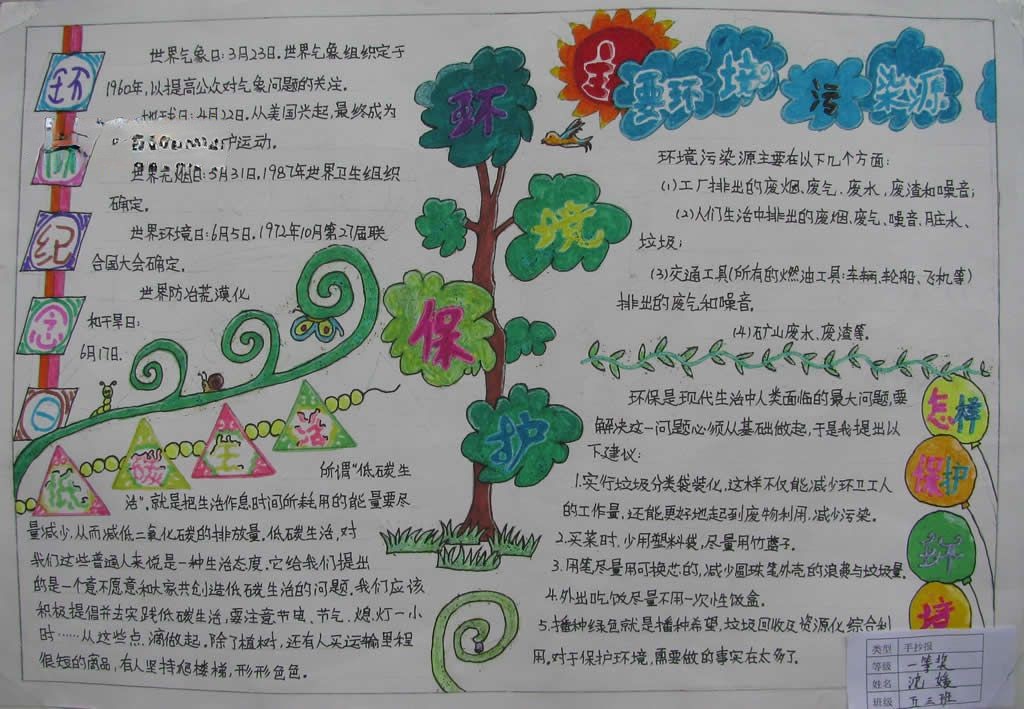 环
保
纪
念
日
世界气象日:3月23日.世界气象组织定于
1960年,以提高公众对气象问题的关注.
地球日:4月22日.从美国兴起,最终成为
护运动.
世界无烟日:5月31日.1987年世界卫生组织
确定.
世界环境日:6月5日.1972年10月第27届联
合国大会确定.
世界防治荒漠化
和干旱日:
6月17日.
低碳生活
所谓“低碳生
活”.就是把生活作息时间所耗用的能量要尽
量减少,从而减低二氧化碳的排放量.低碳生活,对
我们这些普通人来说是一种生活态度.它给我们提出
的是一个意不愿意和大家共创造低碳生活的问题.我们应该
积极提倡并去实践低碳生活,要注意节电、节气、熄灯一小
时……从这些点滴做起.除了植树,还有人买运输里程
很短的商品,有人坚持爬楼梯,形形色色.
环
境
保
护
主要环境污染源
环境污染源主要在以下几个方面:
(1)工厂排出的废烟、废气,废水,废渣和噪音;
(2)人们生活中排出的废烟、废气、噪音、脏水、
垃圾;
(3)交通工具(所有的燃油工具:车辆、轮船、飞机等)
排出的废气和噪音.
(4)矿山废水、废渣等.
怎样
保护
环
境
环保是现代生活中人类面临的最大问题,要
解决这一问题必须从基础做起,于是我提出以
下建议:
1.实行垃圾分类袋装化.这样不仅能减少环卫工人
的工作量,还能更好地起到废物利用,减少污染.
2.买菜时,少用塑料袋,尽量用竹蓝子.
3.用笔尽量用可换芯的,减少圆珠笔外壳的浪费与垃圾量.
4.外出吃饭尽量不用一次性饭盒.
5.播种绿色就是播种希望,垃圾回收及资源化综合利
用.对于保护环境,需要做的事实在太多了.
类型 手抄报
等级 一等奖
姓名 沈媛
班级 五三班